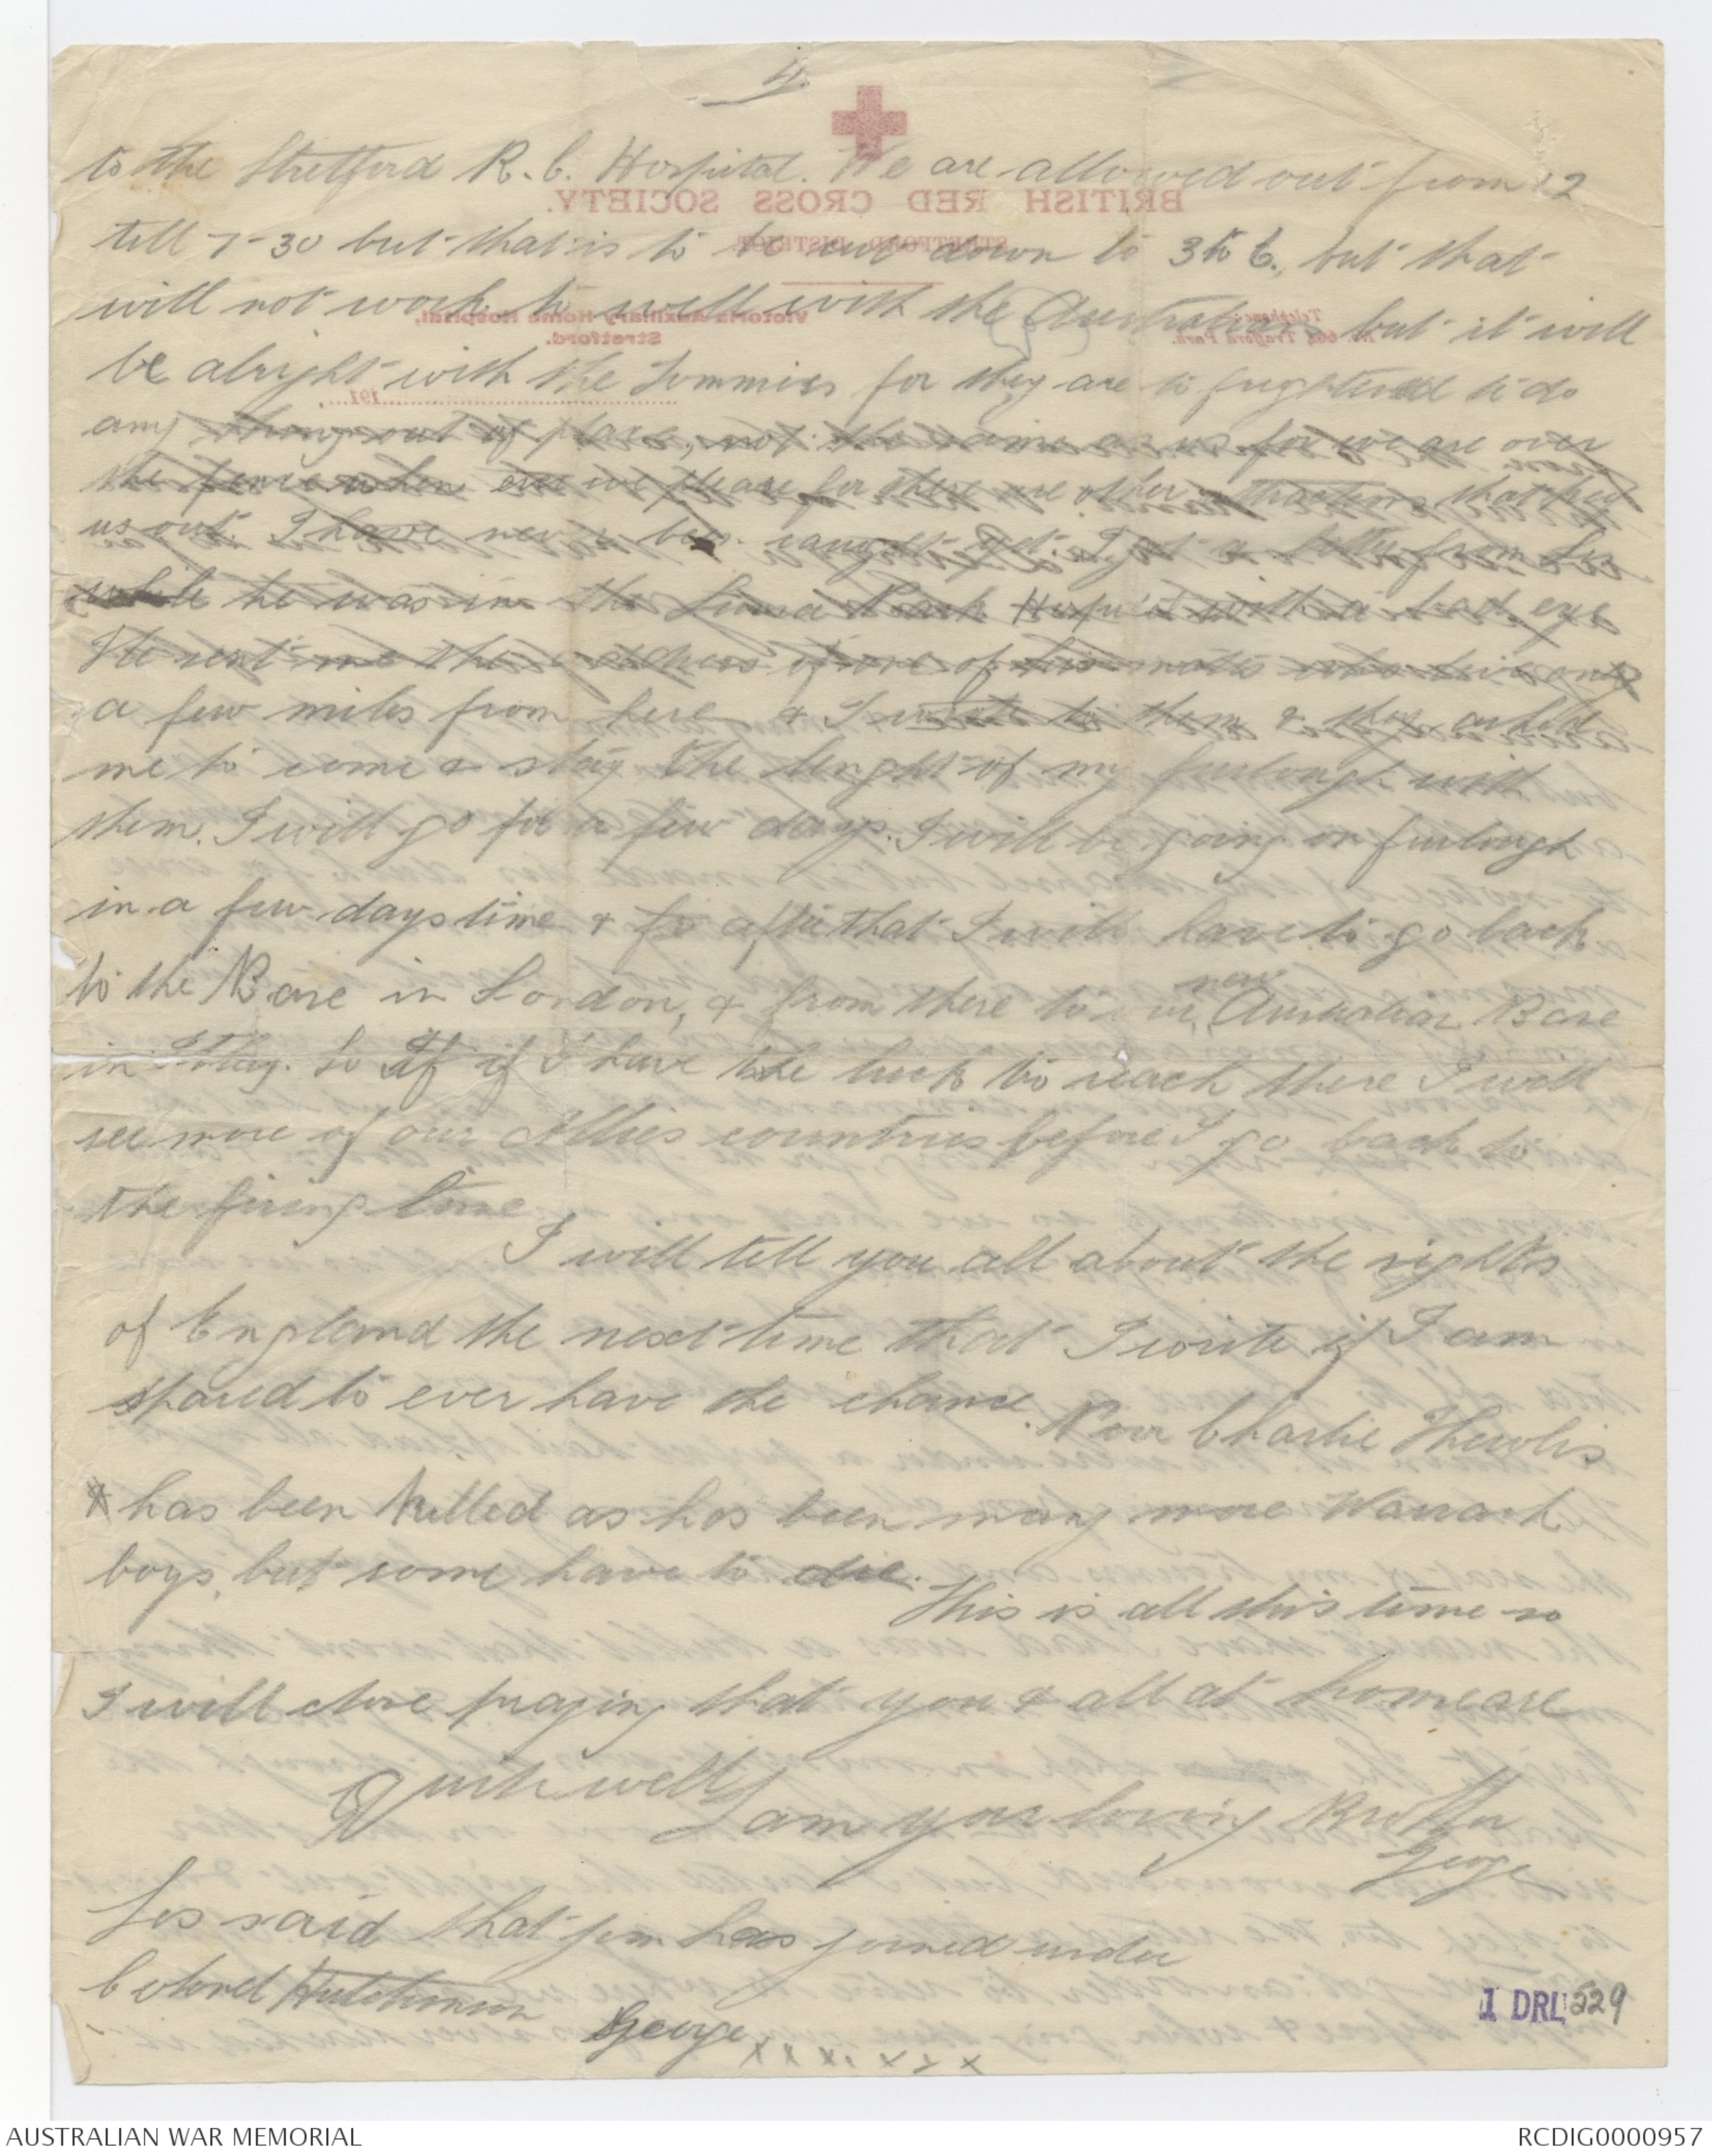 4.
to the Stretford R.C. Hospital. We are allowed out from 12
till 7-30 but that is to be cut down to 3 to 6, but that
will not work to well with the Australians but it will
be alright with the Tommies for they are to frightened to do
any thing out of place, not the same as us for we are over
the fence when ever we please for there are other attractions that keep
us out. I have never been caught yet. I got a letter from Les
while he was in the Luna Park Hospital with a bad eye
He sent me the address of one of his mates who live only
a few miles from here & I wrote to them & they asked
me to come & stay the lenght of my furlough with
them. I will go for a few days. I will be going on furlough
in a few days time & after that I will have to go back
to the Base in London, & from there to our new Australian Base
in Italy. So If if I have the luck to reach there I will
see more of our Allies countries before I go back to
the firing line
I will tell you all about the sights
of England the next time that I write if I am
spared to ever have the chance. Poor Charlie Thewlis
has been killed as has been many more Warrack
boys, but some have to die.
This is all this time so
I will close praying that you & all at home are
Quite well
I am your loving Brother
George
Les said that Jim has joined under
Colonel Hutchinson
George
x x x x x x x
BRITISH RED CROSS SOCIETY.
STRETFORD DISTRICT
Victoria Auxiliary Home Hospital,
Stretford.
Telephone:
Trafford Park.
191
1 DRL 229
AUSTRALIAN WAR MEMORIAL
RCDIG0000957